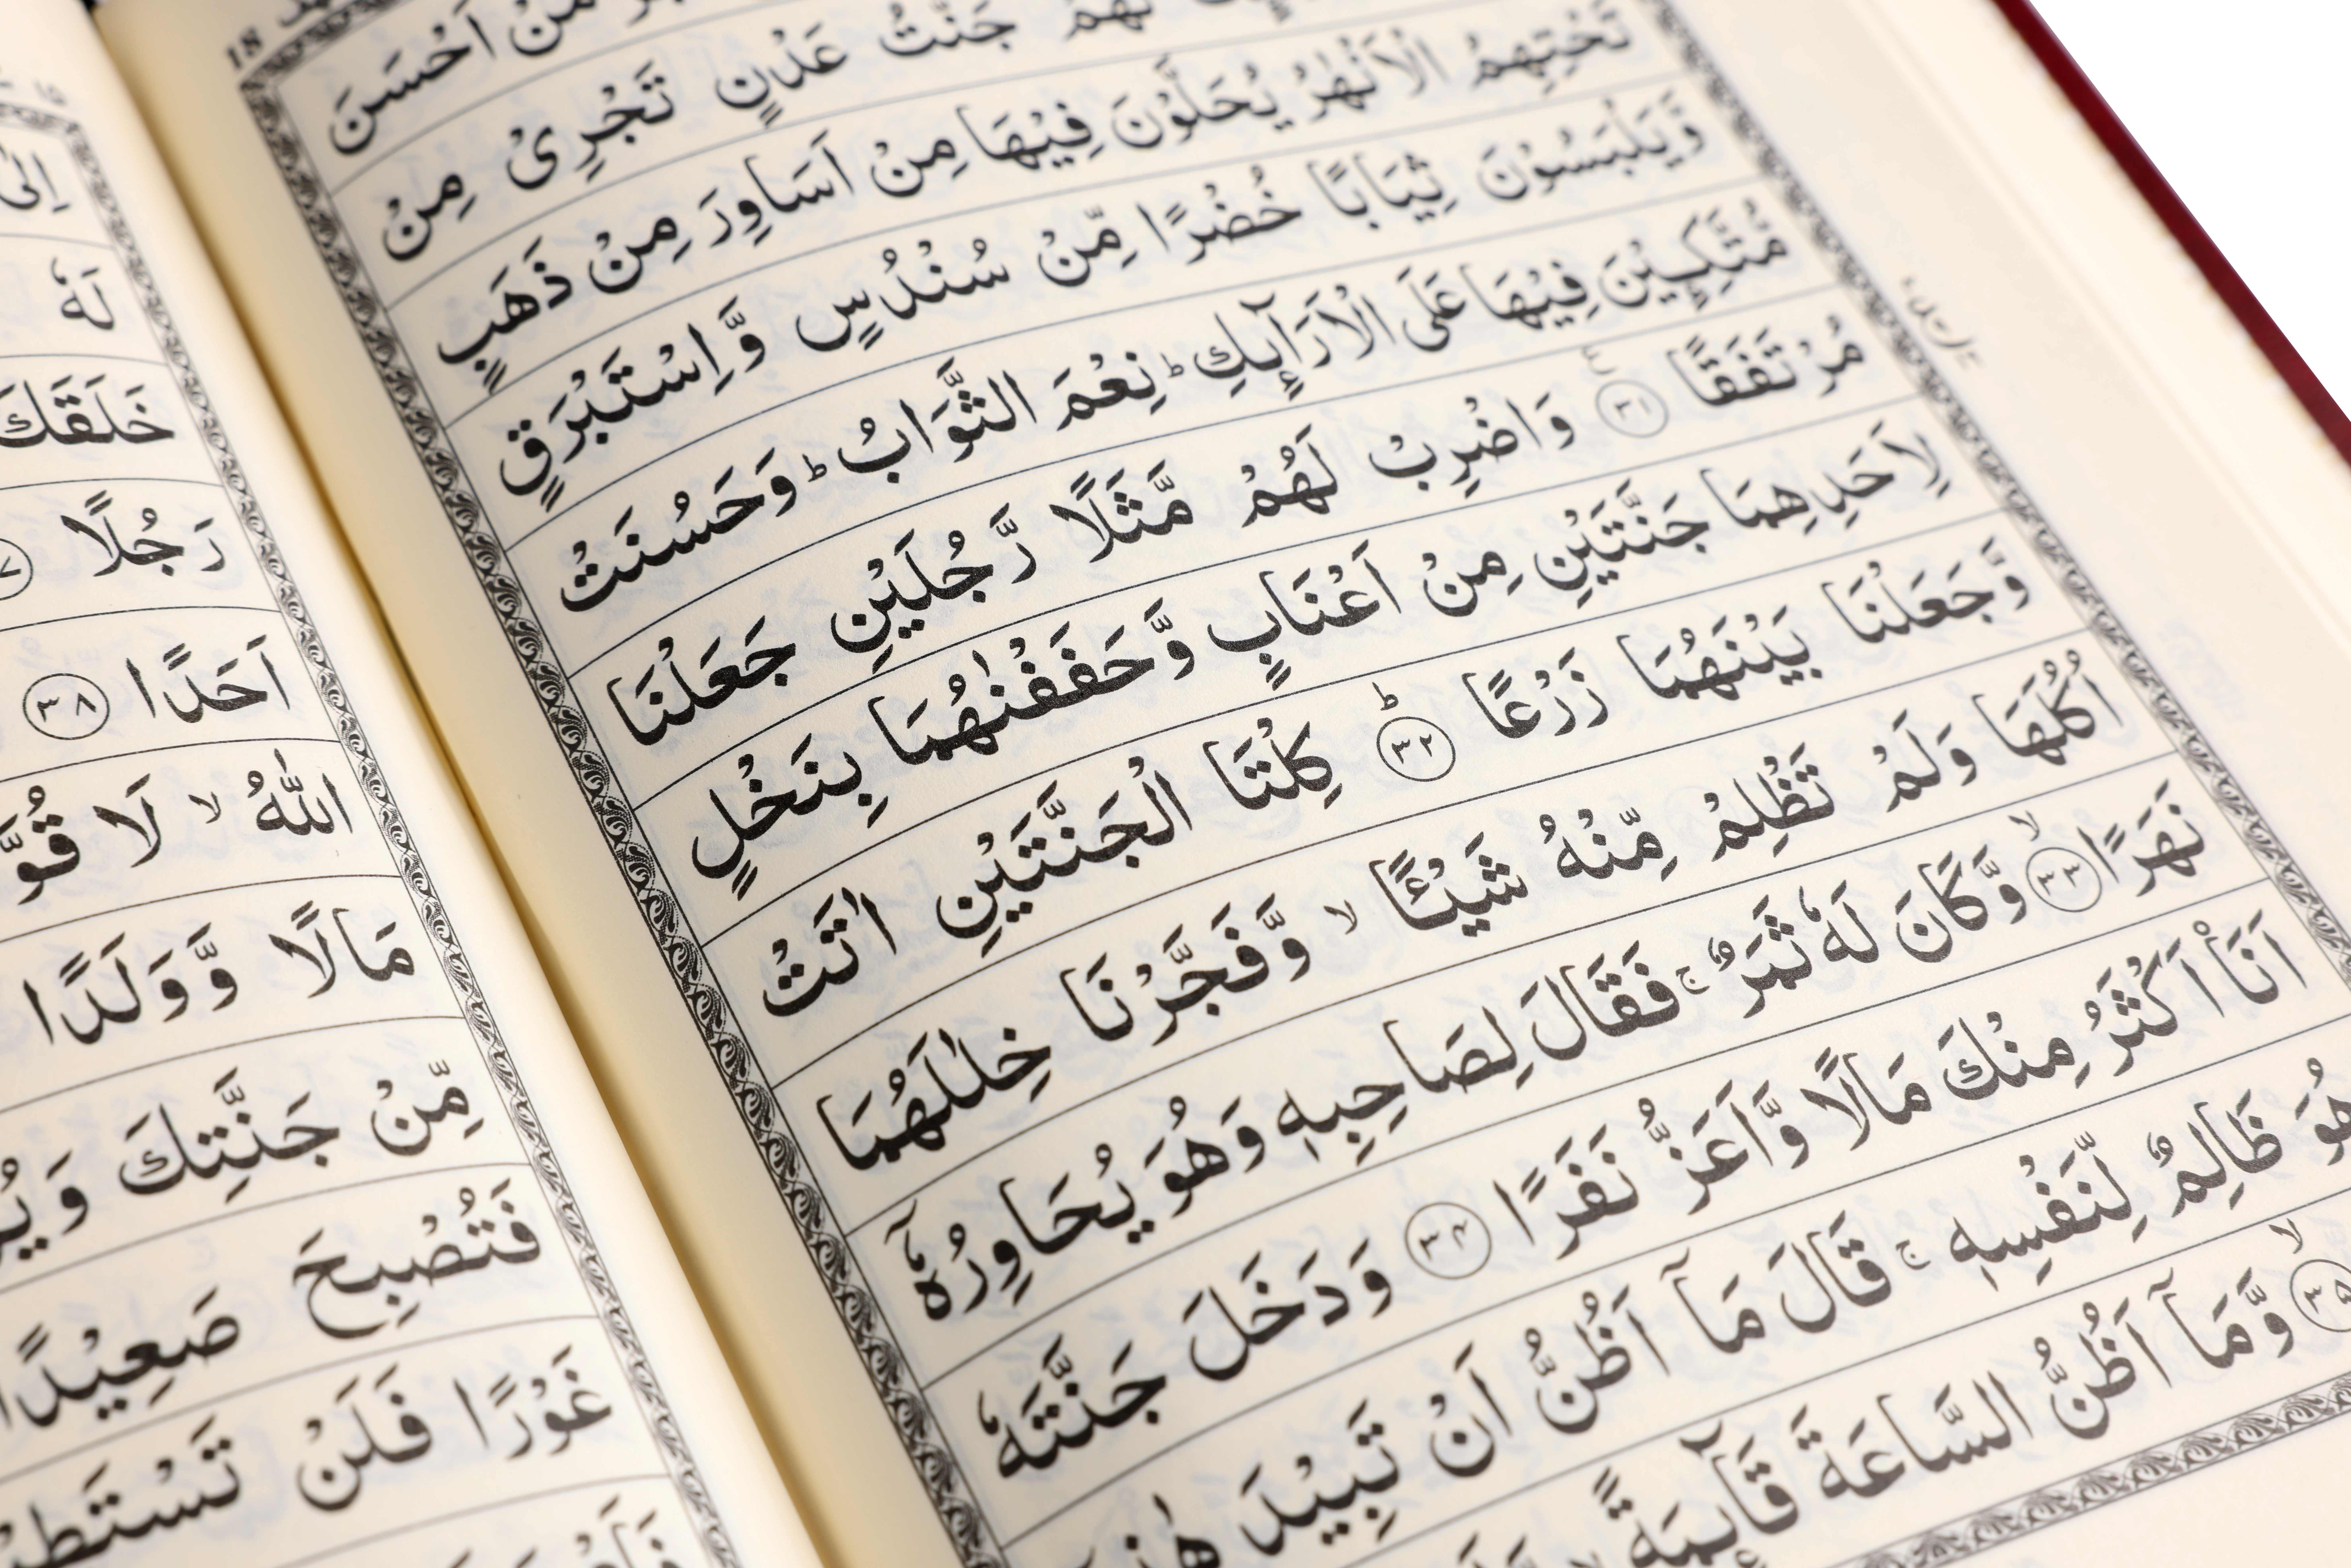 18
مَنْ اَحْسَنَ
لَهُمْ جَنّٰتُ عَدْنٍ تَجْرِیْ مِنْ
تَحْتِهِمُ الْاَنْهٰرُ یُحَلَّوْنَ فِیْهَا مِنْ اَسَاوِرَ مِنْ ذَهَبٍ
وَّیَلْبَسُوْنَ ثِیَابًا خُضْرًا مِّنْ سُنْدُسٍ وَّاِسْتَبْرَقٍ
مُّتَّكِـِٕیْنَ فِیْهَا عَلَی الْاَرَآىِٕكِ ؕ نِعْمَ الثَّوَابُ ؕ وَحَسُنَتْ
مُرْتَفَقًا ۳۱ وَاضْرِبْ لَهُمْ مَّثَلًا رَّجُلَیْنِ جَعَلْنَا
لِاَحَدِهِمَا جَنَّتَیْنِ مِنْ اَعْنَابٍ وَّحَفَفْنٰهُمَا بِنَخْلٍ
وَّجَعَلْنَا بَیْنَهُمَا زَرْعًا ؕ ۳۲ كِلْتَا الْجَنَّتَیْنِ اٰتَتْ
اُكُلَهَا وَلَمْ تَظْلِمْ مِّنْهُ شَیْـًٔا ۙ وَّفَجَّرْنَا خِلٰلَهُمَا
نَهَرًا ۙ ۳۳ وَّكَانَ لَهٗ ثَمَرٌ ۚ فَقَالَ لِصَاحِبِهٖ وَهُوَ یُحَاوِرُهٗۤ
اَنَا اَكْثَرُ مِنْكَ مَالًا وَّاَعَزُّ نَفَرًا ۳۴ وَدَخَلَ جَنَّتَهٗ
هُوَ ظَالِمٌ لِّنَفْسِهٖ ۚ قَالَ مَاۤ اَظُنُّ اَنْ تَبِیْدَ هٰذِهٖۤ
ۙ ۳۵ وَّمَاۤ اَظُنُّ السَّاعَةَ قَآىِٕمَةً
لَهٗ
خَلَقَكَ
رَجُلًا
اَحَدًا ۳۸
اللّٰهُ ۙ لَا قُوَّ
مَالًا وَّوَلَدًا
مِّنْ جَنَّتِكَ وَیُ
فَتُصْبِحَ صَعِیْدًا
غَوْرًا فَلَنْ تَسْتَطِیْ